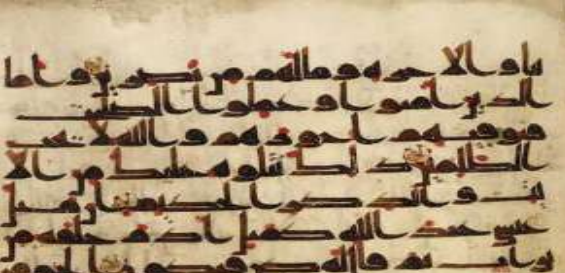 نيا والاخره وما لهم من نصرين واما
الذين امنوا وعملوا الصلحت
فيوفيهم اجورهم والله لا يحب
الظلمين ذلك نتلوه عليك من الا
يت والذكر الحكيم ان مثل
عيسى عند الله كمثل ادم خلقه من
تراب ثم قال له كن فيكون الحق